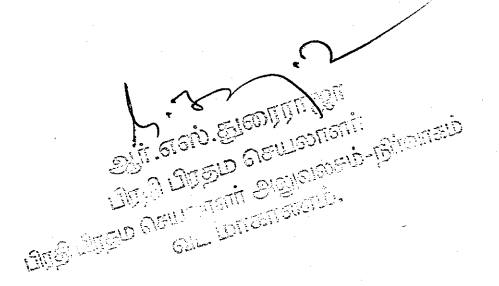 ஆர்.எஸ்.துரைராஜா
பிரதி பிரதம செயலாளர்
பிரதி பிரதம செயலாளர் அலுவலகம்-நிர்வாகம்
வட மாகாணம்.